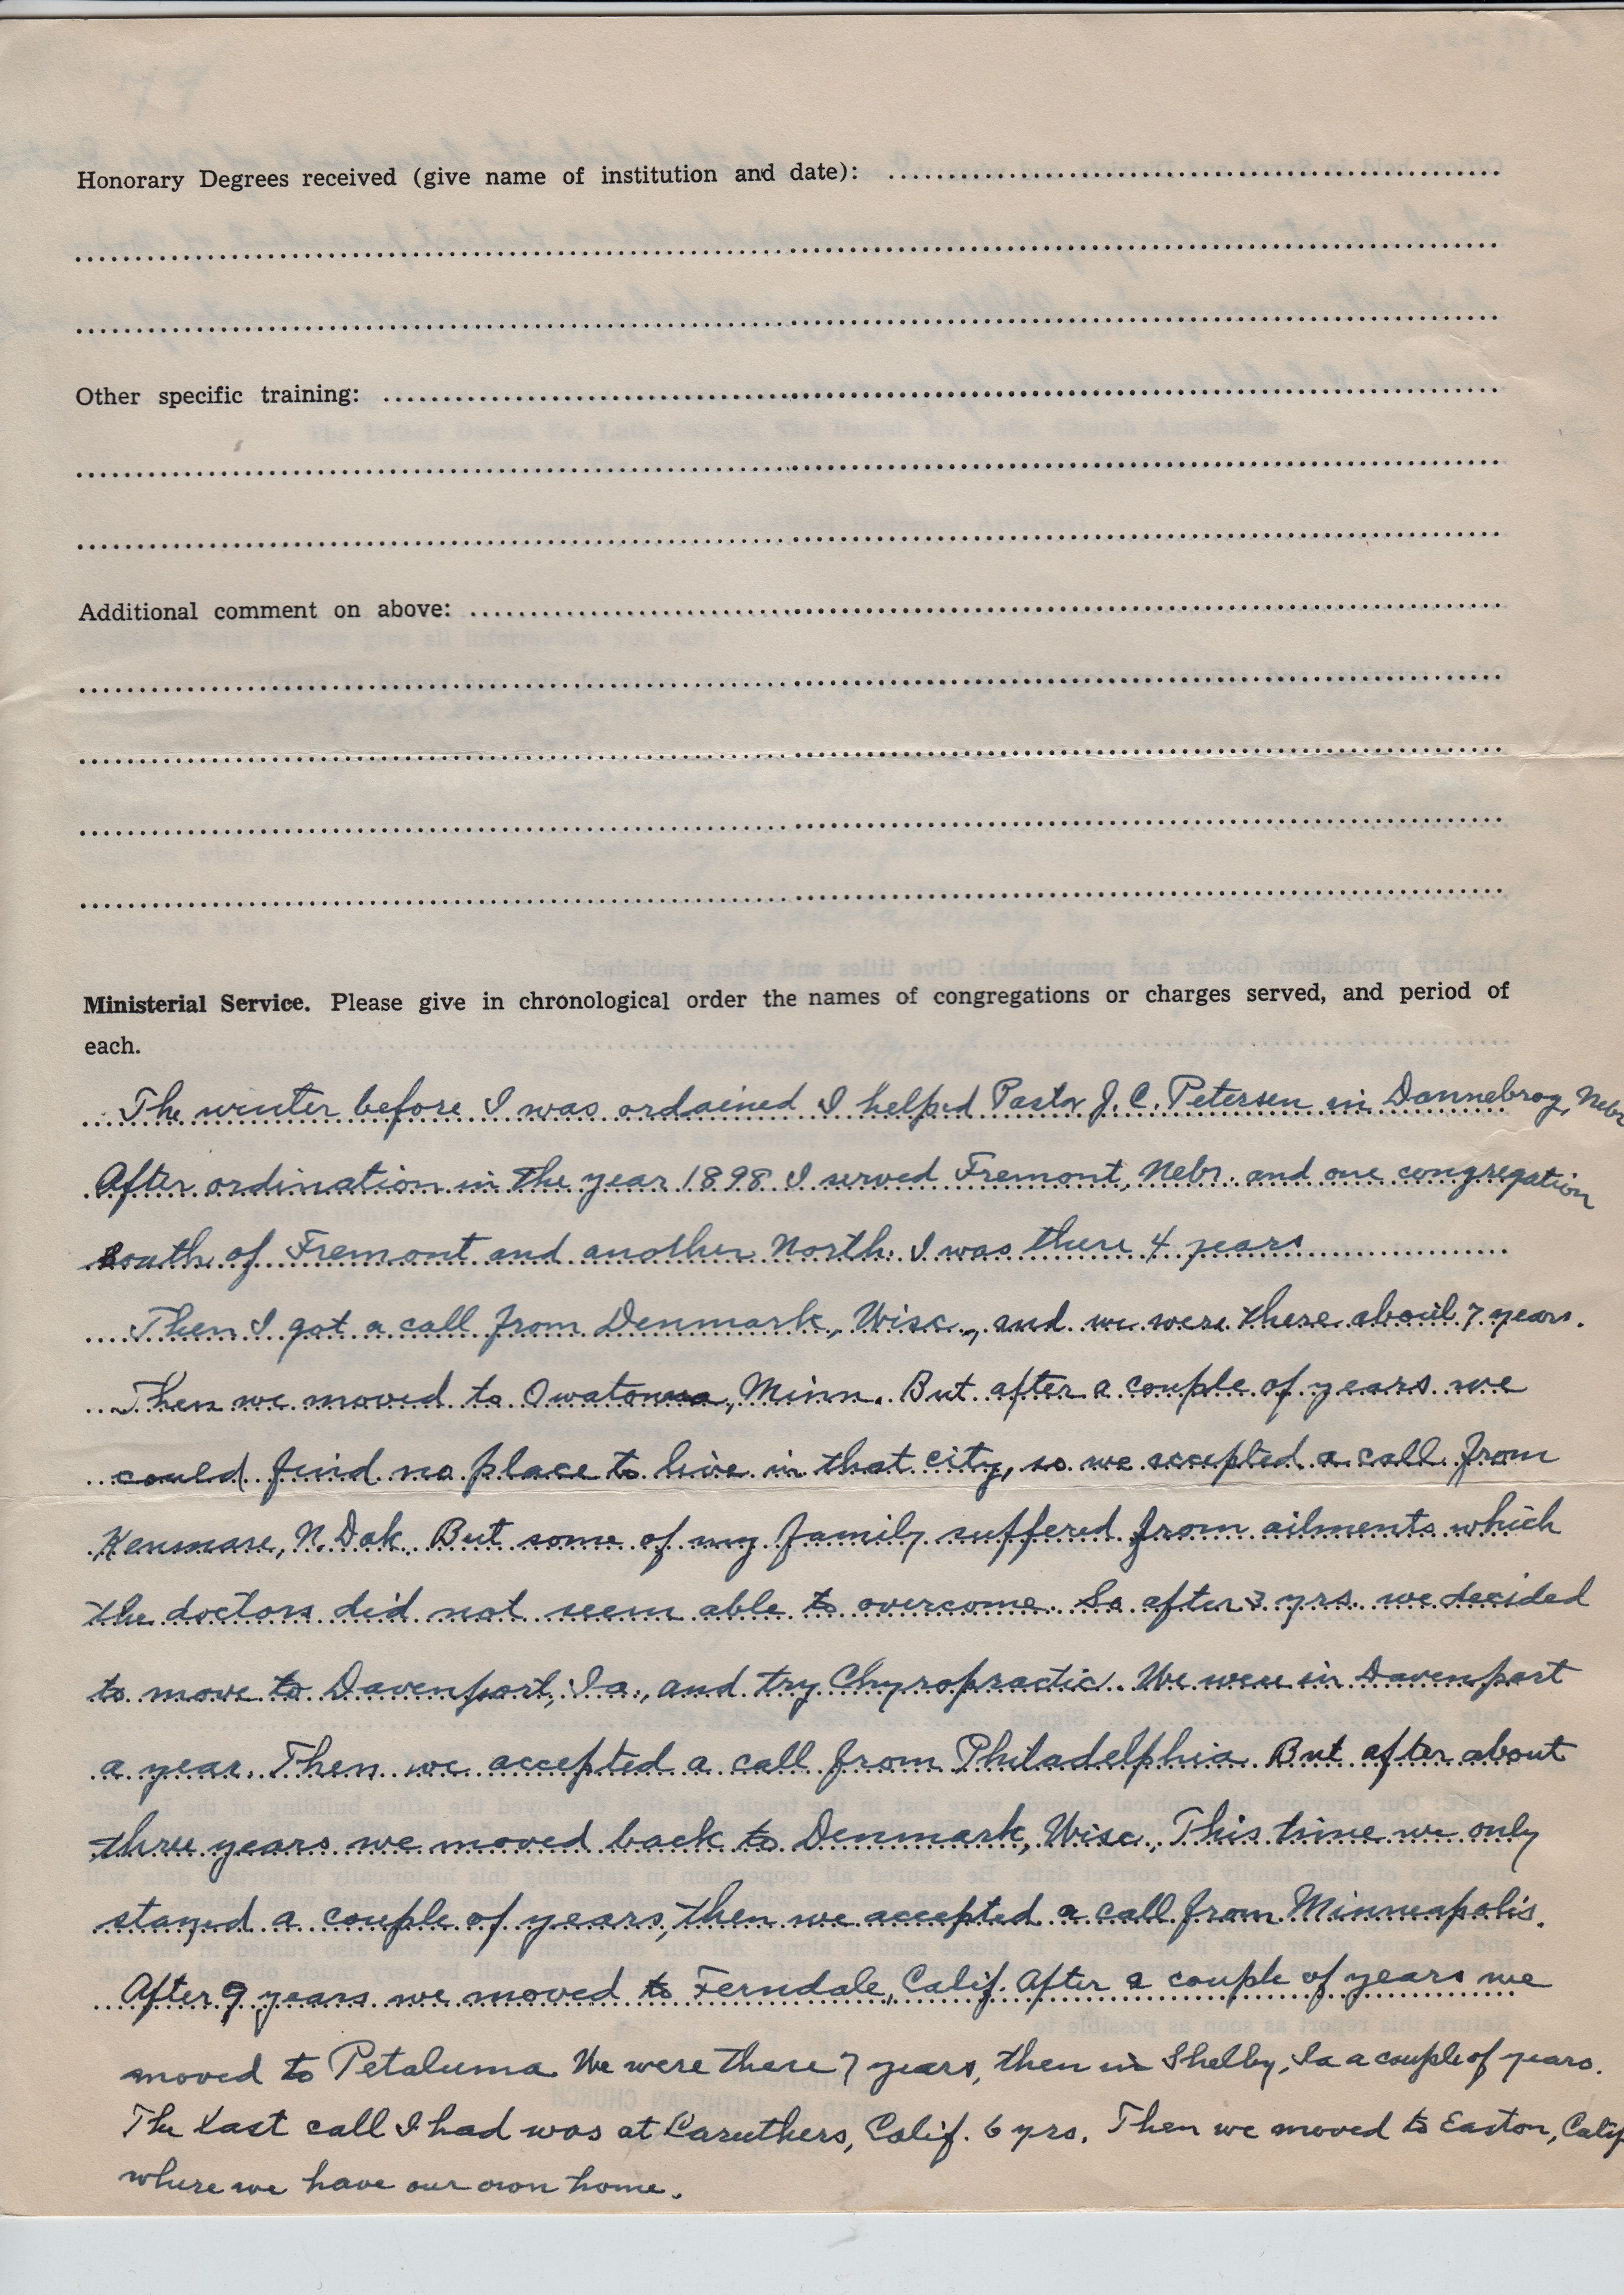 Honorary Degrees received (give name of institution and date):
Other specific training:
Additional comment on above:
Ministerial Service. Please give in chronological order the names of congregations or charges served, and period of
each.
The winter before I was ordained I helped Pastor J. C. Petersen in Dannebrog, Nebr
After ordination in the year 1898 I served Fremont, Nebr. and one congregation
south of Fremont and another North. I was there 4 years
Then I got a call from Denmark, Wisc., and we were there about 7 years.
Then we moved to Owatonna, Minn. But after a couple of years we
could find no place to live in that city, so we accepted a call from
Kenmare, N. Dak. But some of my family suffered from ailments which
the doctors did not seem able to overcome. So after 3 yrs. we decided
to move to Davenport, Ia., and try Chyropractic. We were in Davenport
a year. Then we accepted a call from Philadelphia. But after about
three years we moved back to Denmark, Wisc., This time we only
stayed a couple of years, then we accepted a call from Minneapolis.
After 9 years we moved to Ferndale, Calif. After a couple of years we
moved to Petaluma. We were there 7 years, then in Shelby, Ia a couple of years.
The last call I had was at Caruthers, Calif. 6 yrs. Then we moved to Easton, Calif
where we have our own home.